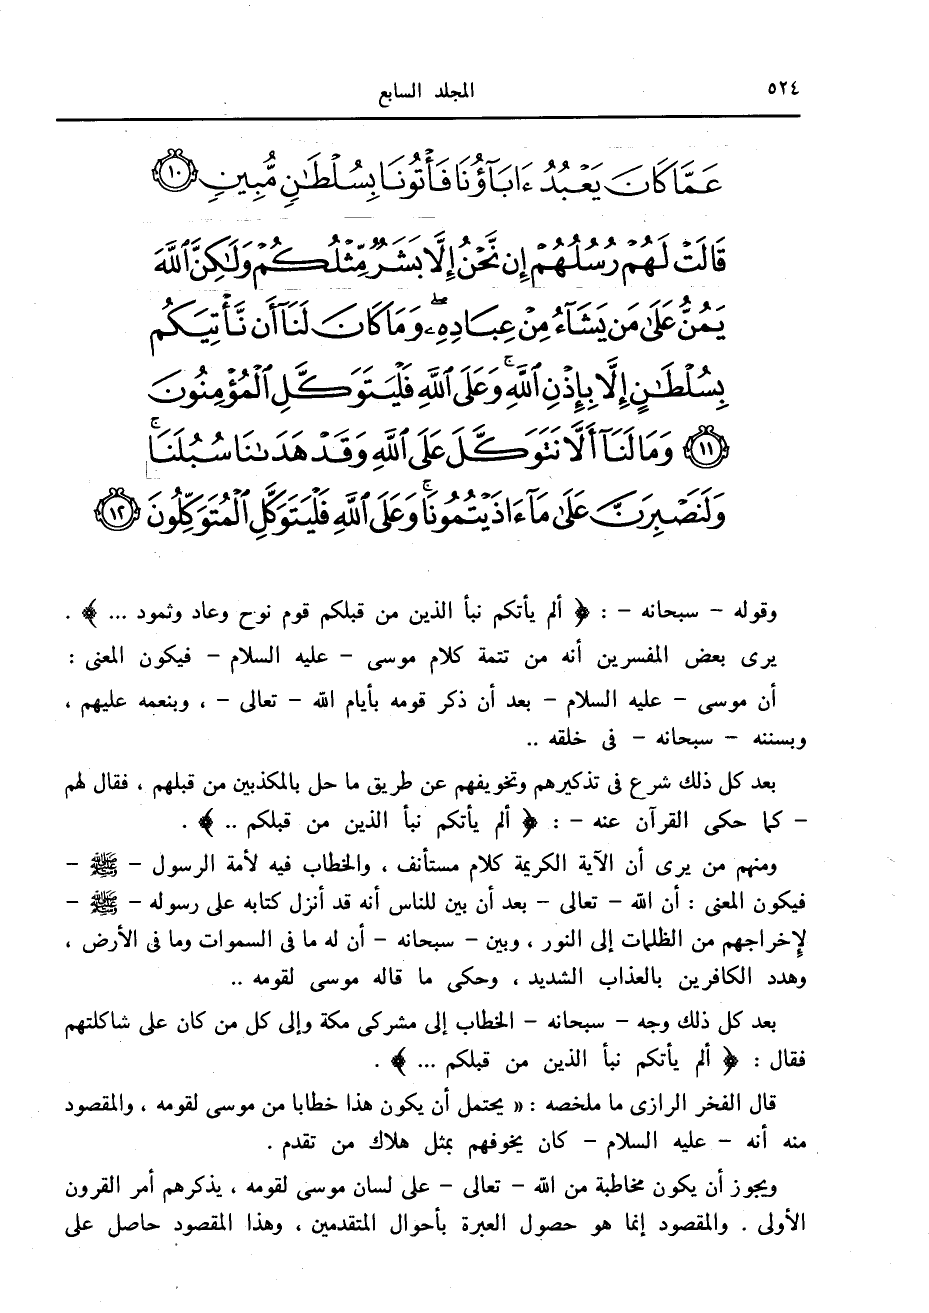 ٥٢٤
المجلد السابع
عَمَّا كَانَ يَعْبُدُ ءَابَآؤُنَا فَأْتُونَا بِسُلْطَٰنٍ مُّبِينٍ ١٠
قَالَتْ لَهُمْ رُسُلُهُمْ إِن نَّحْنُ إِلَّا بَشَرٌ مِّثْلُكُمْ وَلَٰكِنَّ ٱللَّهَ
يَمُنُّ عَلَىٰ مَن يَشَآءُ مِنْ عِبَادِهِۦ ۖ وَمَا كَانَ لَنَآ أَن نَّأْتِيَكُم
بِسُلْطَٰنٍ إِلَّا بِإِذْنِ ٱللَّهِ ۚ وَعَلَى ٱللَّهِ فَلْيَتَوَكَّلِ ٱلْمُؤْمِنُونَ
١١ وَمَا لَنَآ أَلَّا نَتَوَكَّلَ عَلَى ٱللَّهِ وَقَدْ هَدَىٰنَا سُبُلَنَا ۚ
وَلَنَصْبِرَنَّ عَلَىٰ مَآ ءَاذَيْتُمُونَا ۚ وَعَلَى ٱللَّهِ فَلْيَتَوَكَّلِ ٱلْمُتَوَكِّلُونَ ١٢
وقوله – سبحانه – : ﴿ ألم يأتكم نبأ الذين من قبلكم قوم نوح وعاد وثمود ... ﴾ .
يرى بعض المفسرين أنه من تتمة كلام موسى – عليه السلام – فيكون المعنى :
أن موسى – عليه السلام – بعد أن ذكر قومه بأيام الله – تعالى – ، وبنعمه عليهم ،
وبسننه – سبحانه – فى خلقه ..
بعد كل ذلك شرع فى تذكيرهم وتخويفهم عن طريق ما حل بالمكذبين من قبلهم ، فقال لهم
– كما حكى القرآن عنه – : ﴿ ألم يأتكم نبأ الذين من قبلكم .. ﴾ .
ومنهم من يرى أن الآية الكريمة كلام مستأنف ، والخطاب فيه لأمة الرسول – ﷺ –
فيكون المعنى : أن الله – تعالى – بعد أن بين للناس أنه قد أنزل كتابه على رسوله – ﷺ –
لإخراجهم من الظلمات إلى النور ، وبين – سبحانه – أن له ما فى السموات وما فى الأرض ،
وهدد الكافرين بالعذاب الشديد ، وحكى ما قاله موسى لقومه ..
بعد كل ذلك وجه – سبحانه – الخطاب إلى مشركى مكة وإلى كل من كان على شاكلتهم
فقال : ﴿ ألم يأتكم نبأ الذين من قبلكم ... ﴾ .
قال الفخر الرازى ما ملخصه : « يحتمل أن يكون هذا خطابا من موسى لقومه ، والمقصود
منه أنه – عليه السلام – كان يخوفهم بمثل هلاك من تقدم .
ويجوز أن يكون مخاطبة من الله – تعالى – على لسان موسى لقومه ، يذكرهم أمر القرون
الأولى . والمقصود إنما هو حصول العبرة بأحوال المتقدمين ، وهذا المقصود حاصل على